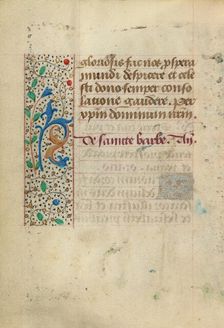 gloriosis fac nos, pspera
mundi despicere et cele
sti dono semper conso
latione gaudere. Per
xpm dominum nrm
De sainte barbe. An̄.